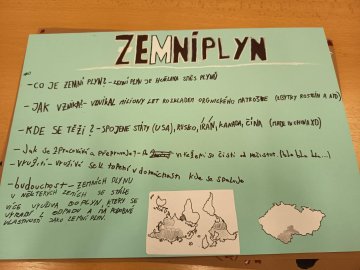 ZEMNÍ PLYN
-CO JE ZEMNÍ PLYN? - ZEMNÍ PLYN JE HOŘLAVÁ SMĚS PLYNŮ
-JAK VZNIKÁ? - VZNIKAL MILIONY LET ROZKLADEM ORGANICKÉHO MATERIÁLU (ZBYTKY ROSTLIN A
-KDE SE TĚŽÍ? - SPOJENÉ STÁTY (USA), RUSKO, ÍRÁN, KANADA, ČÍNA (MADE IN CHINA XD)
-Jak se zpracovává a přepravuje? - Po vytěžení se čistí od nečistot. (bla bla bla...)
-Využití - využívá se k topení v domácnostech kde se spaluje
-budoucnost - ZEMNÍHO PLYNU
V NĚKTERÝCH ZEMÍCH SE STÁLE
VÍCE VYUŽÍVÁ BIOPLYN, KTERÝ SE
VYRÁBÍ Z ODPADU A MÁ PODOBNÉ
VLASTNOSTI JAKO ZEMNÍ PLYN.